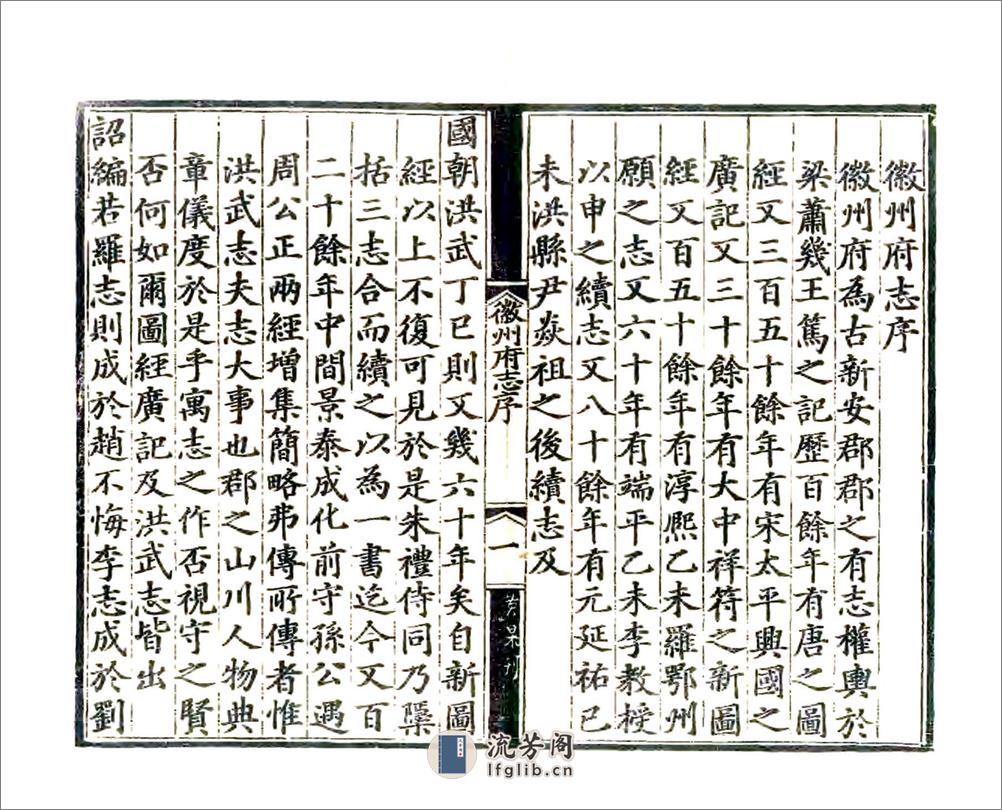 徽州府志序
徽州府為古新安郡郡之有志權輿於
梁蕭幾王篤之記歷百餘年有唐之圖
經又三百五十餘年有宋太平興國之
廣記又三十餘年有大中祥符之新圖
經又百五十餘年有淳熙乙未羅鄂州
願之志又六十年有端平乙未李教授
以申之續志又八十餘年有元延祐己
未洪縣尹焱祖之後續志及
徽州府志序
一
黃杲刊
國朝洪武丁巳則又幾六十年矣自新圖
經以上不復可見於是朱禮侍同乃檃
括三志合而續之以為一書迄今又百
二十餘年中間景泰成化前守孫公遇
周公正兩經增集簡略弗傳所傳者惟
洪武志夫志大事也郡之山川人物典
章儀度於是乎寓志之作否視守之賢
否何如爾圖經廣記及洪武志皆出
詔編若羅志則成於趙不悔李志成於劉
流芳阁
lfglib.cn